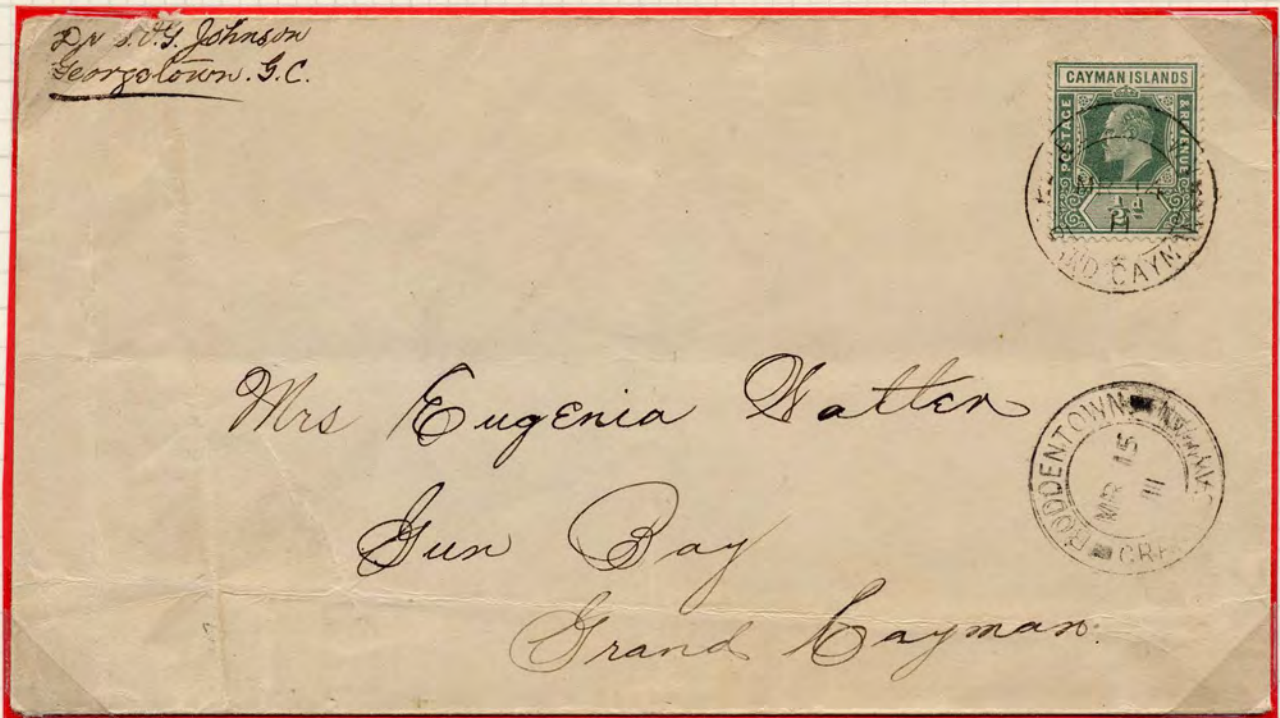 Dr S.O.G. Johnson
Georgetown. G.C.
CAYMAN ISLANDS
POSTAGE & REVENUE
½d
MR 14
11
GRAND CAYMAN
Mrs Eugenia Watler
Gun Bay
Grand Cayman.
BODDENTOWN
MAR 15
11
CAYMAN